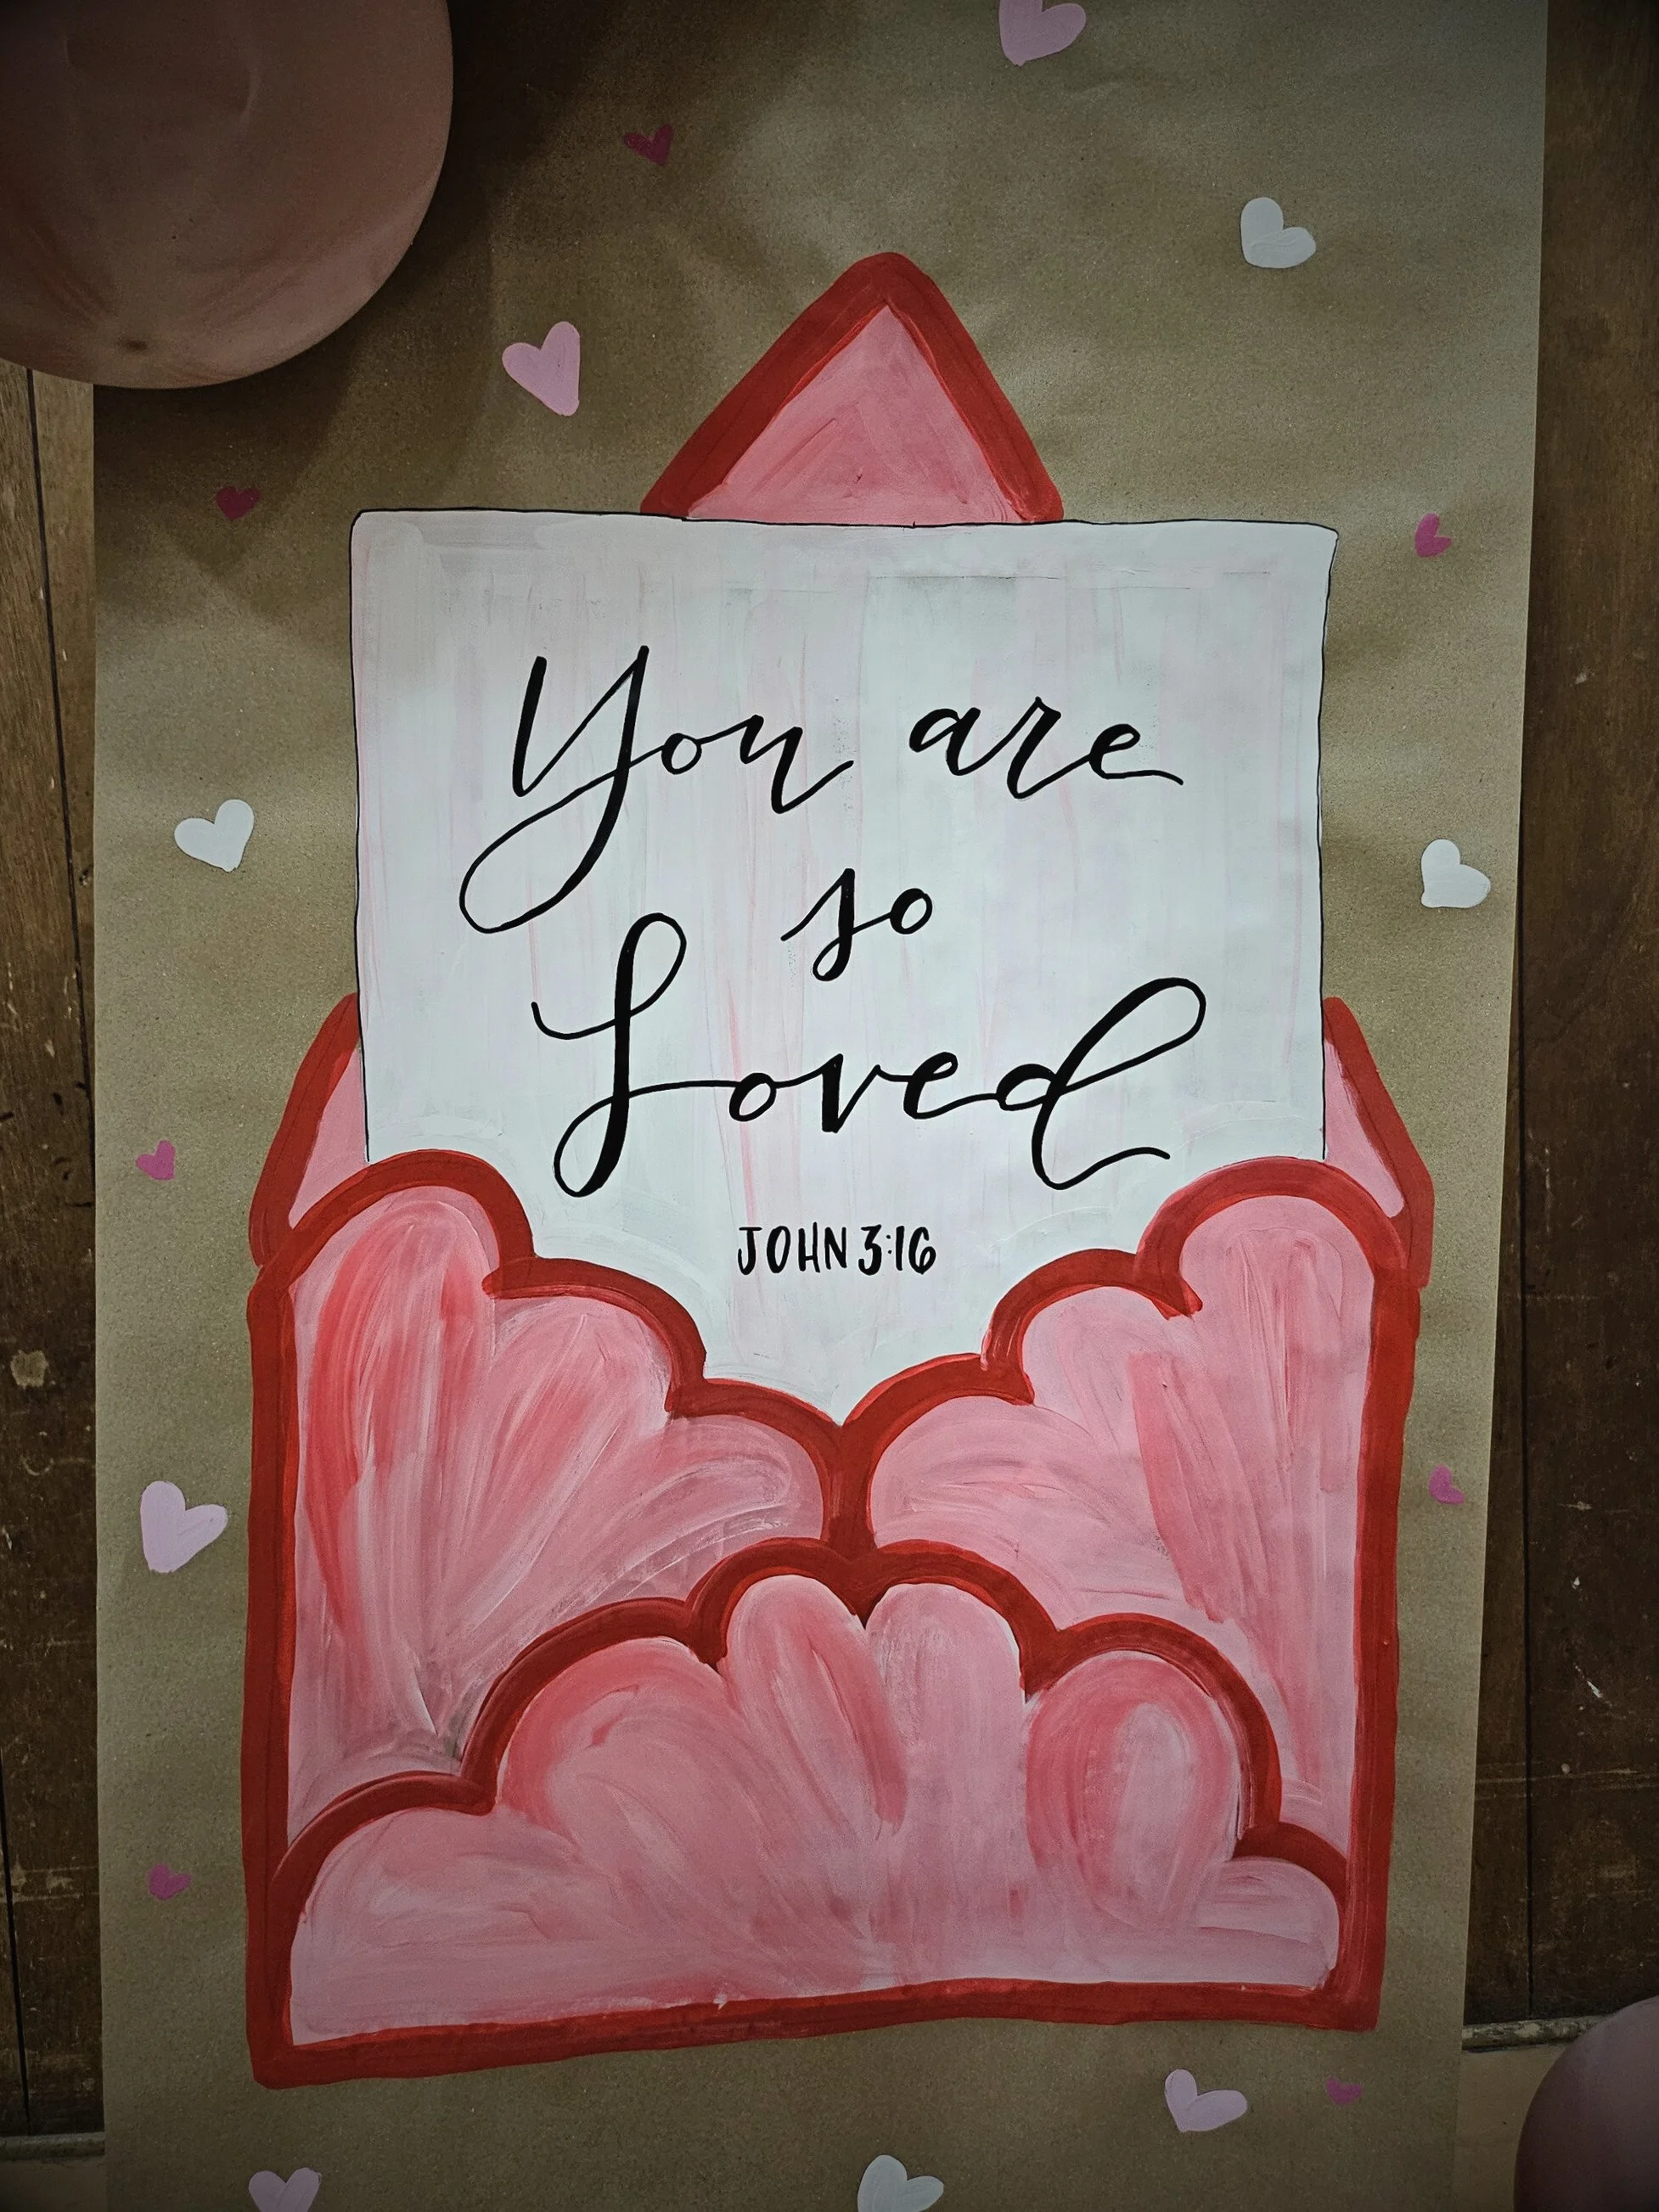 You are
so
Loved
JOHN 3:16